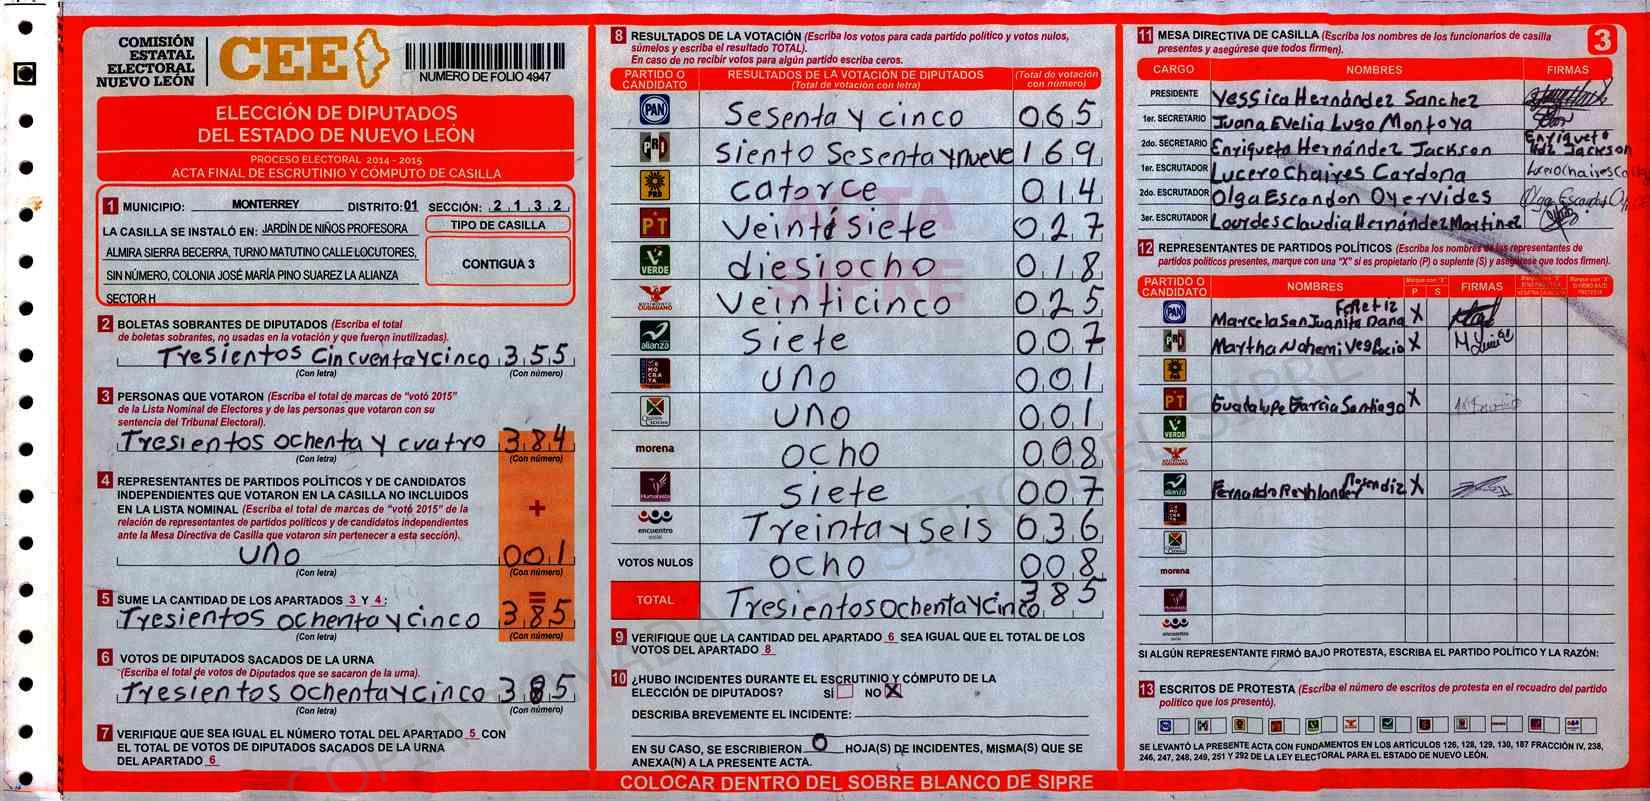 COMISIÓN
ESTATAL
ELECTORAL
NUEVO LEÓN
CEE
NUMERO DE FOLIO 4947
ELECCIÓN DE DIPUTADOS
DEL ESTADO DE NUEVO LEÓN
PROCESO ELECTORAL 2014 - 2015
ACTA FINAL DE ESCRUTINIO Y CÓMPUTO DE CASILLA
1 MUNICIPIO: MONTERREY DISTRITO: 01 SECCIÓN: 2 1 3 2
LA CASILLA SE INSTALÓ EN: JARDÍN DE NIÑOS PROFESORA
ALMIRA SIERRA BECERRA, TURNO MATUTINO CALLE LOCUTORES,
SIN NÚMERO, COLONIA JOSÉ MARÍA PINO SUAREZ LA ALIANZA
SECTOR H
TIPO DE CASILLA
CONTIGUA 3
2 BOLETAS SOBRANTES DE DIPUTADOS (Escriba el total
de boletas sobrantes, no usadas en la votación y que fueron inutilizadas).
Tresientos Cincuenta y cinco 3 5 5
(Con letra) (Con número)
3 PERSONAS QUE VOTARON (Escriba el total de marcas de "votó 2015"
de la Lista Nominal de Electores y de las personas que votaron con su
sentencia del Tribunal Electoral).
Tresientos ochenta y cuatro 3 8 4
(Con letra) (Con número)
4 REPRESENTANTES DE PARTIDOS POLÍTICOS Y DE CANDIDATOS
INDEPENDIENTES QUE VOTARON EN LA CASILLA NO INCLUIDOS
EN LA LISTA NOMINAL (Escriba el total de marcas de "votó 2015" de la
relación de representantes de partidos políticos y de candidatos independientes
ante la Mesa Directiva de Casilla que votaron sin pertenecer a esta sección).
+
uno 0 0 1
(Con letra) (Con número)
=
5 SUME LA CANTIDAD DE LOS APARTADOS 3 Y 4:
Tresientos ochenta y cinco 3 8 5
(Con letra) (Con número)
6 VOTOS DE DIPUTADOS SACADOS DE LA URNA
(Escriba el total de votos de Diputados que se sacaron de la urna).
Tresientos ochenta y cinco 3 8 5
(Con letra) (Con número)
7 VERIFIQUE QUE SEA IGUAL EL NÚMERO TOTAL DEL APARTADO 5 CON
EL TOTAL DE VOTOS DE DIPUTADOS SACADOS DE LA URNA
DEL APARTADO 6
8 RESULTADOS DE LA VOTACIÓN (Escriba los votos para cada partido político y votos nulos,
súmelos y escriba el resultado TOTAL).
En caso de no recibir votos para algún partido escriba ceros.
PARTIDO O CANDIDATO RESULTADOS DE LA VOTACIÓN DE DIPUTADOS (Total de votación con letra) (Total de votación con número)
PAN Sesenta y cinco 0 6 5
PRI Siento Sesenta y nueve 1 6 9
PRD catorce 0 1 4
PT Veintisiete 0 2 7
VERDE diesiocho 0 1 8
MOVIMIENTO CIUDADANO Veinticinco 0 2 5
alianza Siete 0 0 7
DEMOCRATA uno 0 0 1
uno 0 0 1
morena ocho 0 0 8
Humanista Siete 0 0 7
encuentro social Treinta y seis 0 3 6
VOTOS NULOS ocho 0 0 8
TOTAL Tresientos ochenta y cinco 3 8 5
ACTA
SIPRE
9 VERIFIQUE QUE LA CANTIDAD DEL APARTADO 6 SEA IGUAL QUE EL TOTAL DE LOS
VOTOS DEL APARTADO 8
10 ¿HUBO INCIDENTES DURANTE EL ESCRUTINIO Y CÓMPUTO DE LA
ELECCIÓN DE DIPUTADOS? SÍ NO X
DESCRIBA BREVEMENTE EL INCIDENTE:
EN SU CASO, SE ESCRIBIERON 0 HOJA(S) DE INCIDENTES, MISMA(S) QUE SE
ANEXA(N) A LA PRESENTE ACTA.
COLOCAR DENTRO DEL SOBRE BLANCO DE SIPRE
11 MESA DIRECTIVA DE CASILLA (Escriba los nombres de los funcionarios de casilla
presentes y asegúrese que todos firmen).
3
CARGO NOMBRES FIRMAS
PRESIDENTE Yessica Hernández Sanchez
1er. SECRETARIO Juana Evelia Lugo Montoya
2do. SECRETARIO Enriqueta Hernández Jackson Enriqueta Hdz Jackson
1er. ESCRUTADOR Lucero Chaires Cardona
2do. ESCRUTADOR Olga Escandon Oyervides
3er. ESCRUTADOR Lourdes Claudia Hernández Martinez
12 REPRESENTANTES DE PARTIDOS POLÍTICOS (Escriba los nombres de los representantes de
partidos políticos presentes, marque con una "X" si es propietario (P) o suplente (S) y asegúrese que todos firmen).
PARTIDO O CANDIDATO NOMBRES Marque con "X" P S FIRMAS
PAN Marcela San Juanita Dana X
PRI Martha Nohemi X
PRD
PT Guadalupe Garcia Santiago X
VERDE
alianza Fernando X
morena
Humanista
encuentro social
SI ALGÚN REPRESENTANTE FIRMÓ BAJO PROTESTA, ESCRIBA EL PARTIDO POLÍTICO Y LA RAZÓN:
13 ESCRITOS DE PROTESTA (Escriba el número de escritos de protesta en el recuadro del partido
político que los presentó).
SE LEVANTÓ LA PRESENTE ACTA CON FUNDAMENTOS EN LOS ARTÍCULOS 126, 128, 129, 130, 187 FRACCIÓN IV, 238,
246, 247, 248, 249, 251 Y 292 DE LA LEY ELECTORAL PARA EL ESTADO DE NUEVO LEÓN.